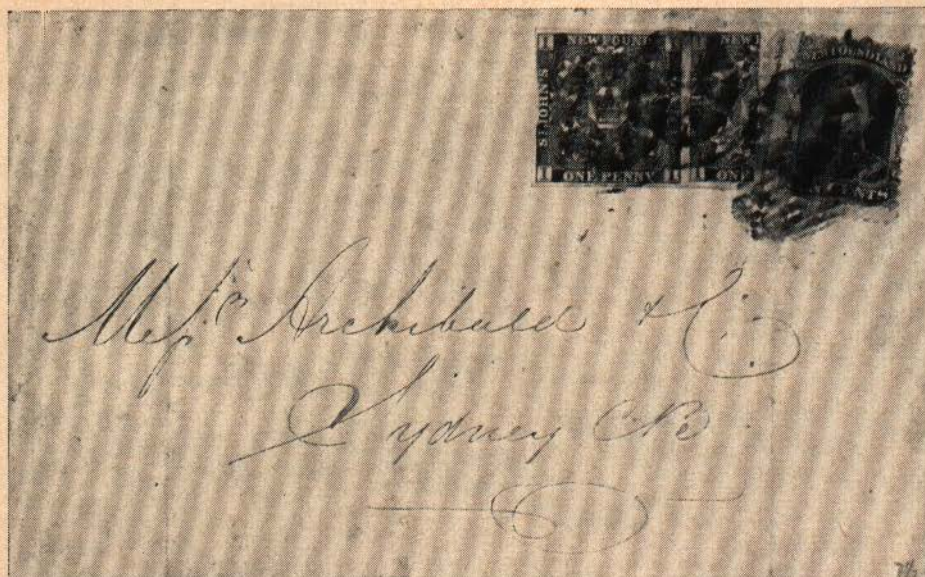 1 NEWFOUND 1 1 NEWF
ST. JOHN'S
1 ONE PENNY 1 1 ONE
NEWFOUNDLAND
CENTS
Messrs Archibald & Co
Sydney CB